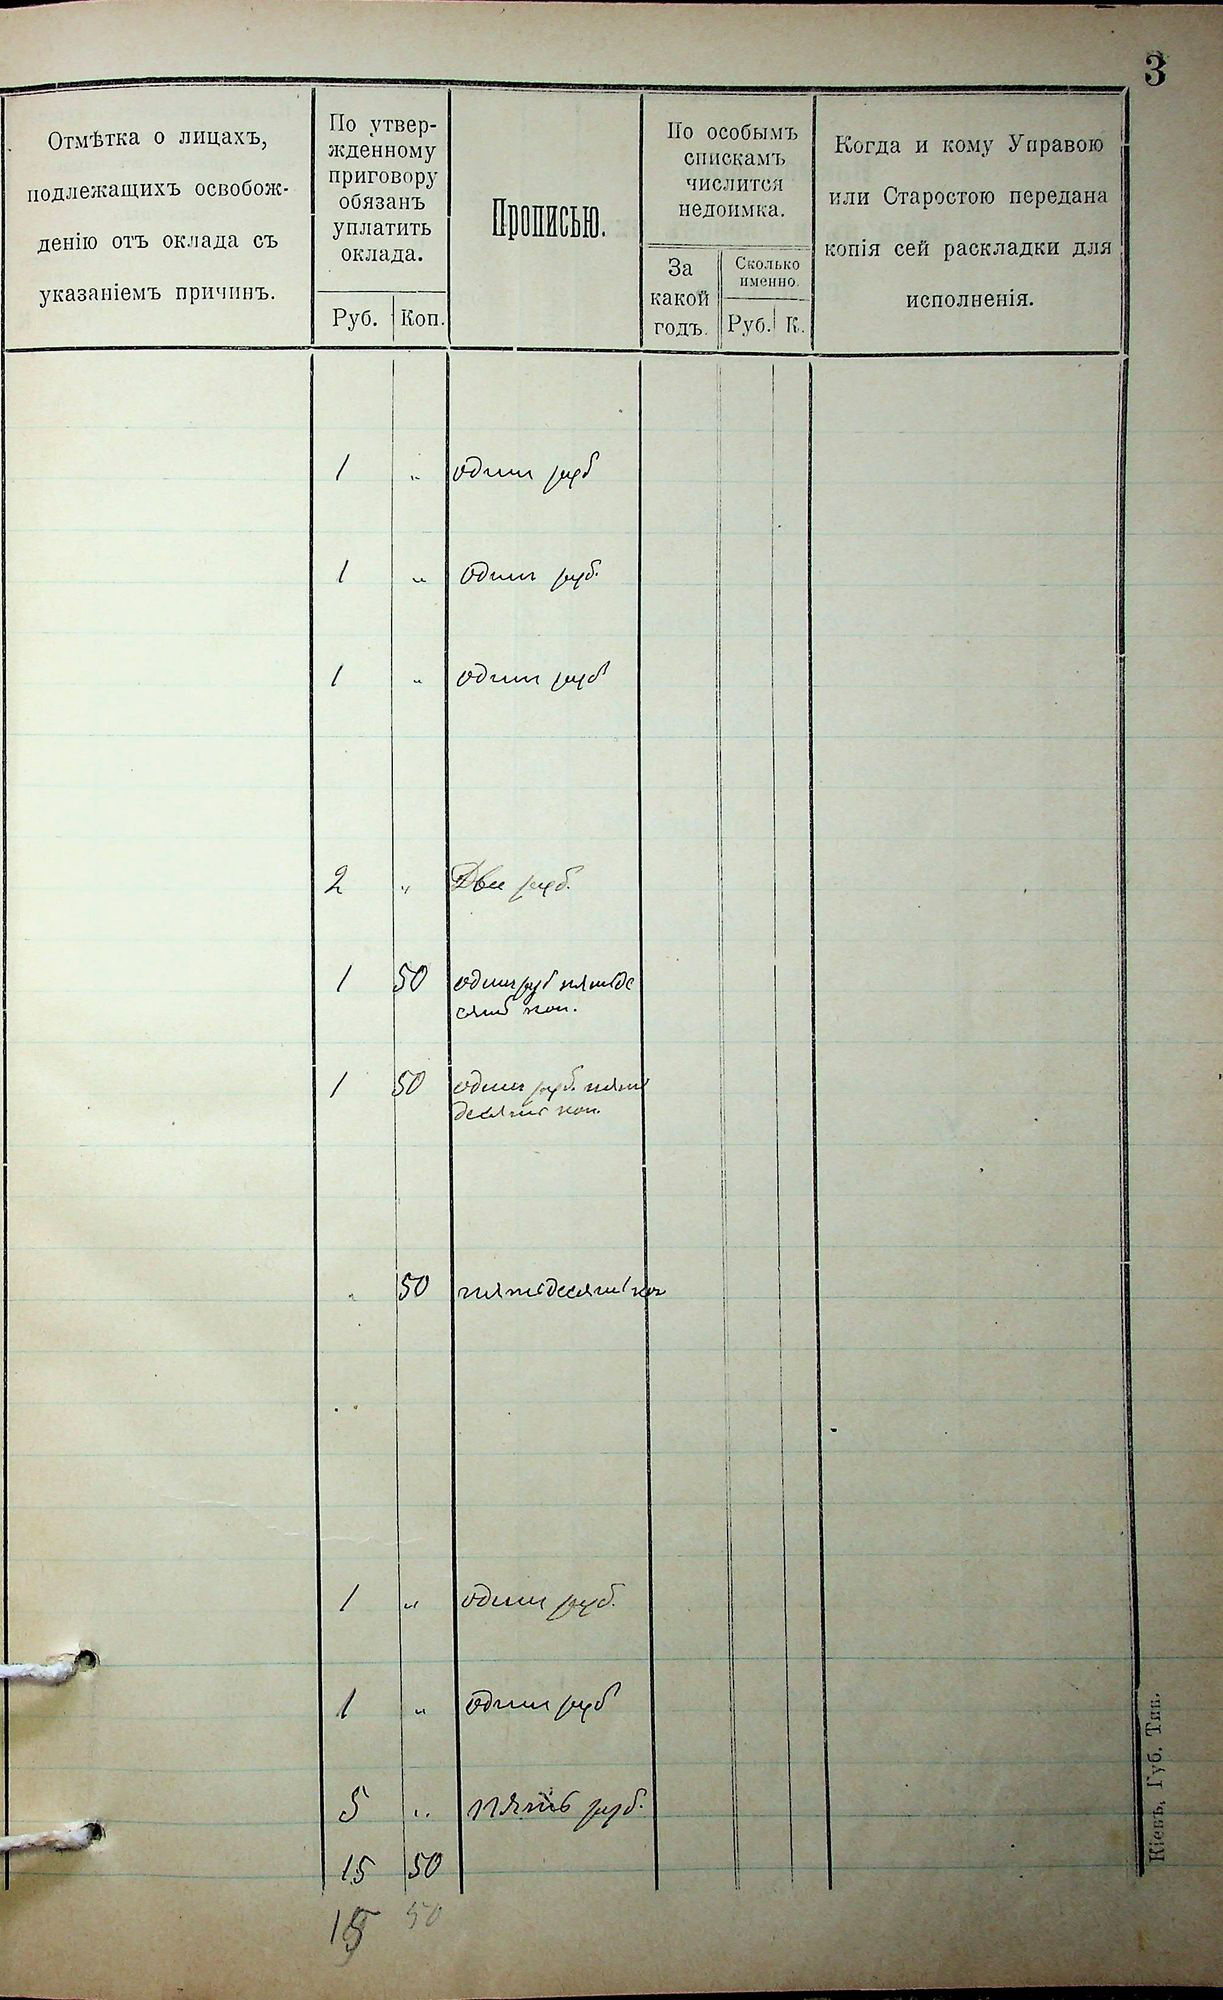 3
Отмѣтка о лицахъ,
подлежащихъ освобож-
денію отъ оклада съ
указаніемъ причинъ.
По утвер-
жденному
приговору
обязанъ
уплатить
оклада.
Руб. Коп.
Прописью.
По особымъ
спискамъ
числится
недоимка.
За
какой
годъ.
Сколько
именно.
Руб. К.
Когда и кому Управою
или Старостою передана
копія сей раскладки для
исполненія.
1 „ один руб
1 „ один руб.
1 „ один руб
2 „ Две руб.
1 50 один руб пятьде
сять коп.
1 50 один руб. пять
десять коп.
„ 50 пятьдесять коп
1 „ один руб.
1 „ один руб
5 „ пять руб.
15 50
15 50
Кіевъ, Губ. Тип.